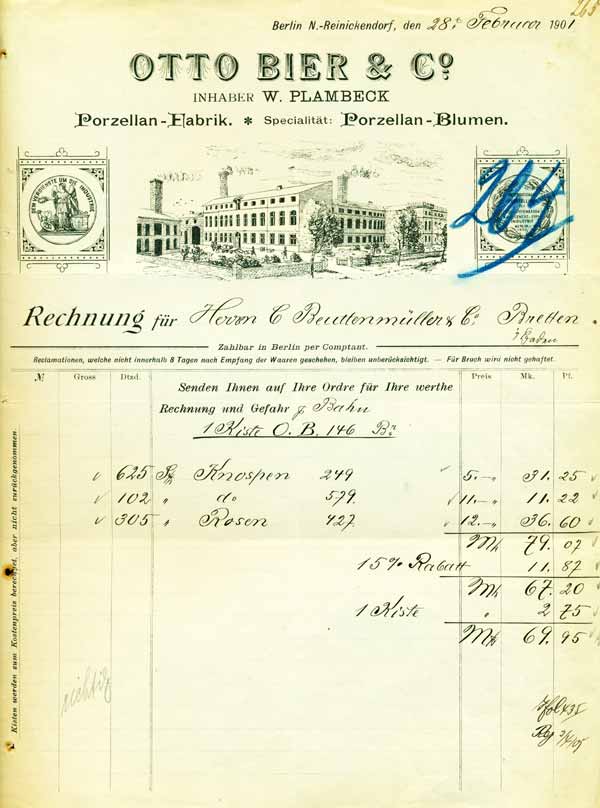 265
Berlin N.-Reinickendorf, den 28t Februar 1901
OTTO BIER & Co.
INHABER W. PLAMBECK
Porzellan-Fabrik. * Specialität: Porzellan-Blumen.
DEM VERDIENSTE UM DIE INDUSTRIE
Rechnung für Herren C Beuttenmüller & Co Bretten
i/Baden
Zahlbar in Berlin per Comptant.
Reclamationen, welche nicht innerhalb 8 Tagen nach Empfang der Waaren geschehen, bleiben unberücksichtigt. — Für Bruch wird nicht gehaftet.
№ Gross Dtzd. Preis Mk. Pf.
Senden Ihnen auf Ihre Ordre für Ihre werthe
Rechnung und Gefahr p. Bahn
1 Kiste O. B. 146 Br
625 Knospen 249 5.— 31. 25
102 " do 579. 11.— 11. 22
305 " Rosen 427. 12.— 36. 60
Mk 79. 07
15% Rabatt 11. 87
Mk 67. 20
1 Kiste " 2 75
Mk 69. 95
richtig
Kisten werden zum Kostenpreis berechnet, aber nicht zurückgenommen.